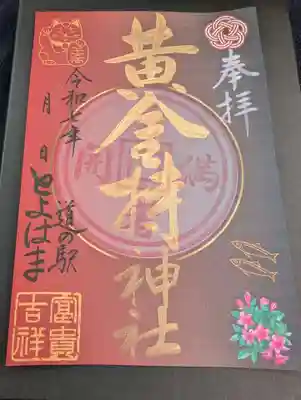 奉拝
黄金持神社
道の駅
とよはま
令和七年
月 日
富貴
吉祥
満